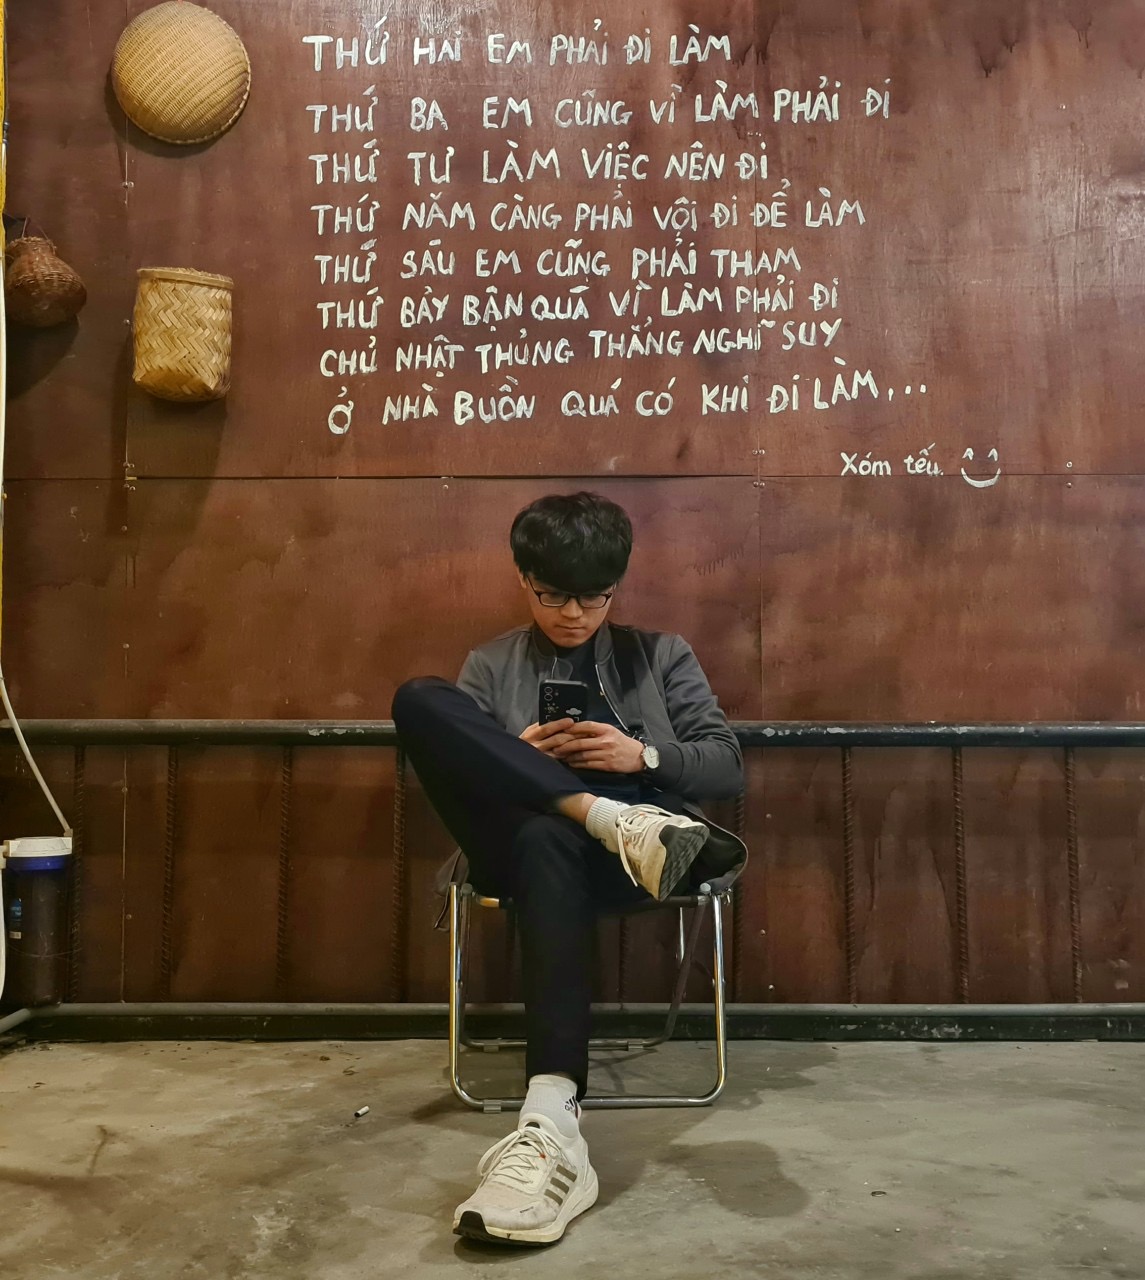 THỨ HAI EM PHẢI ĐI LÀM
THỨ BA EM CŨNG VÌ LÀM PHẢI ĐI
THỨ TƯ LÀM VIỆC NÊN ĐI
THỨ NĂM CÀNG PHẢI VỘI ĐI ĐỂ LÀM
THỨ SÁU EM CŨNG PHẢI THAM
THỨ BẢY BẬN QUÁ VÌ LÀM PHẢI ĐI
CHỦ NHẬT THỦNG THẲNG NGHĨ SUY
Ở NHÀ BUỒN QUÁ CÓ KHI ĐI LÀM...
Xóm tếu